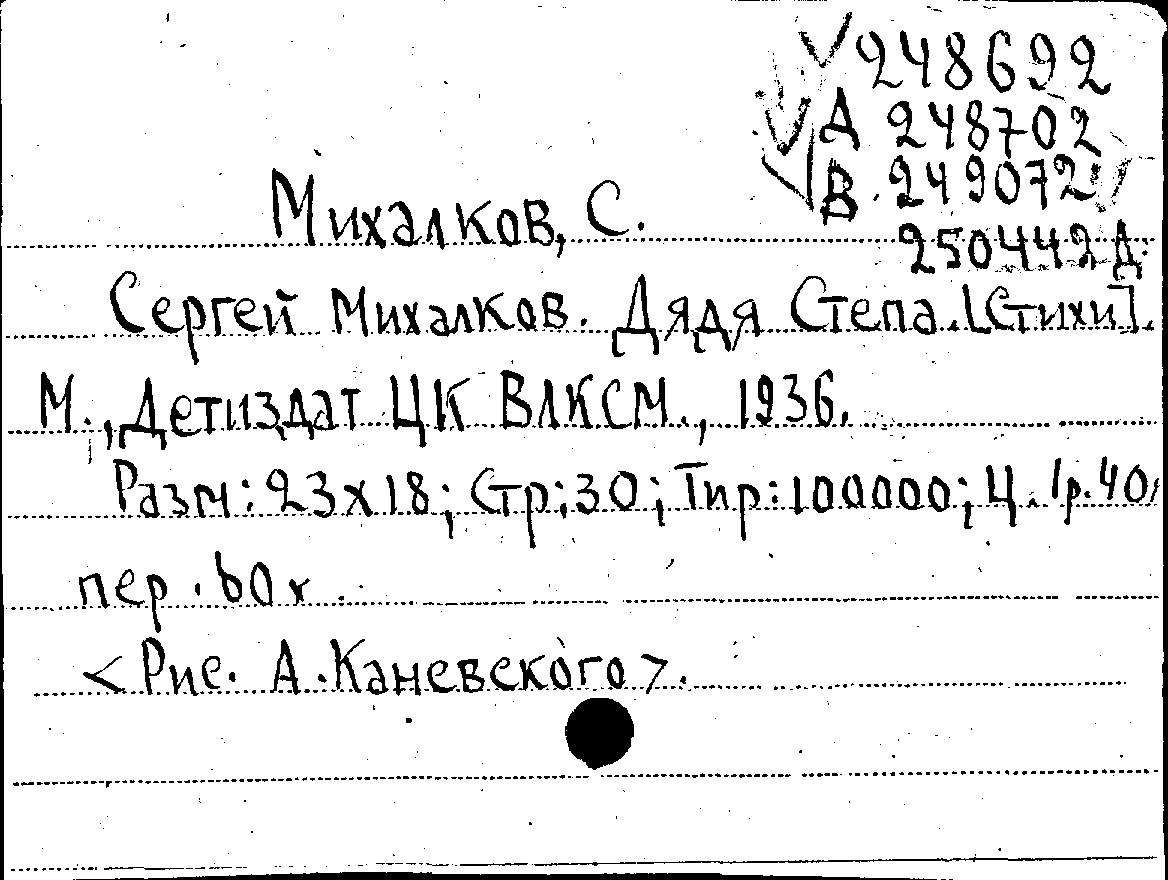 √ 248692
√ А 248702
√ В. 249072 √
250442 Д.
Михалков, С.
Сергей Михалков. Дядя Степа. [Стихи].
М., Детиздат ЦК ВЛКСМ., 1936.
Разм: 23х18; Стр: 30; Тир: 100000; Ц. 1р. 40,
пер. 60к.
<Рис. А. Каневского>.